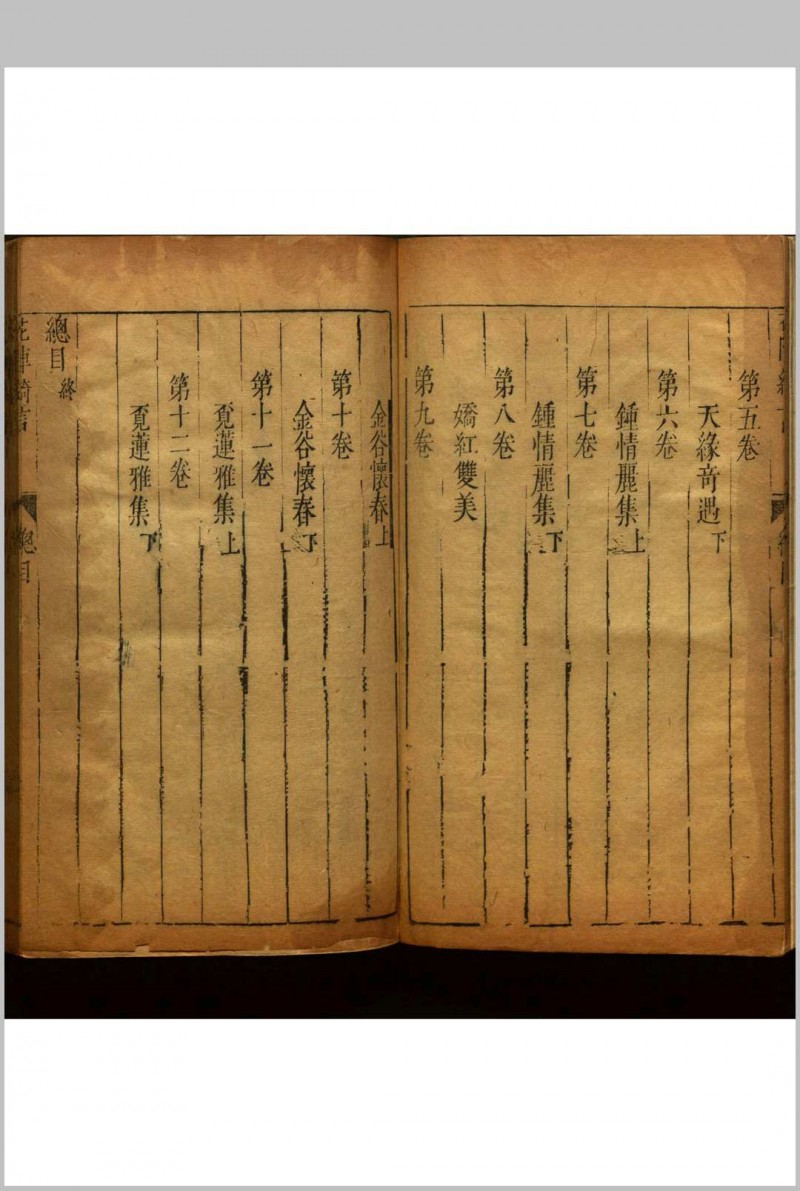 第五卷
天緣奇遇下
第六卷
鍾情麗集上
第七卷
鍾情麗集下
第八卷
嬌紅雙美
第九卷
金谷懷春上
第十卷
金谷懷春下
第十一卷
覔蓮雅集上
第十二卷
覔蓮雅集下
總目終
花陣綺言
總目